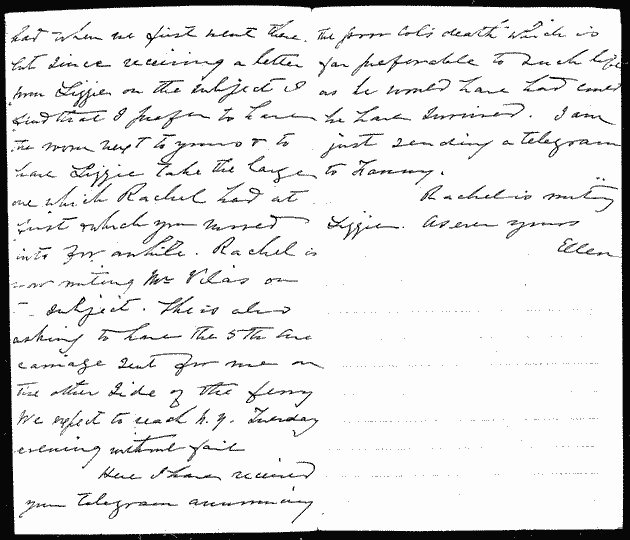 had when we first went there.
but since receiving a letter
from Lizzie on the subject I
find that I prefer to have
the room next to yours & to
have Lizzie take the large
one which Rachel had at
first & which you moved
into for awhile. Rachel is
now writing Mr Vilas on
subject. She is also
asking to have the 5th Ave
carriage sent for me on
the other side of the ferry
We expect to reach N.Y. Tuesday
evening without fail
Here I have received
your telegram announcing
the poor Col's death which is
far preferable to such life
as he would have had could
he have survived. I am
just sending a telegram
to Fanny.
Rachel is writing
Lizzie. As ever yours
Ellen